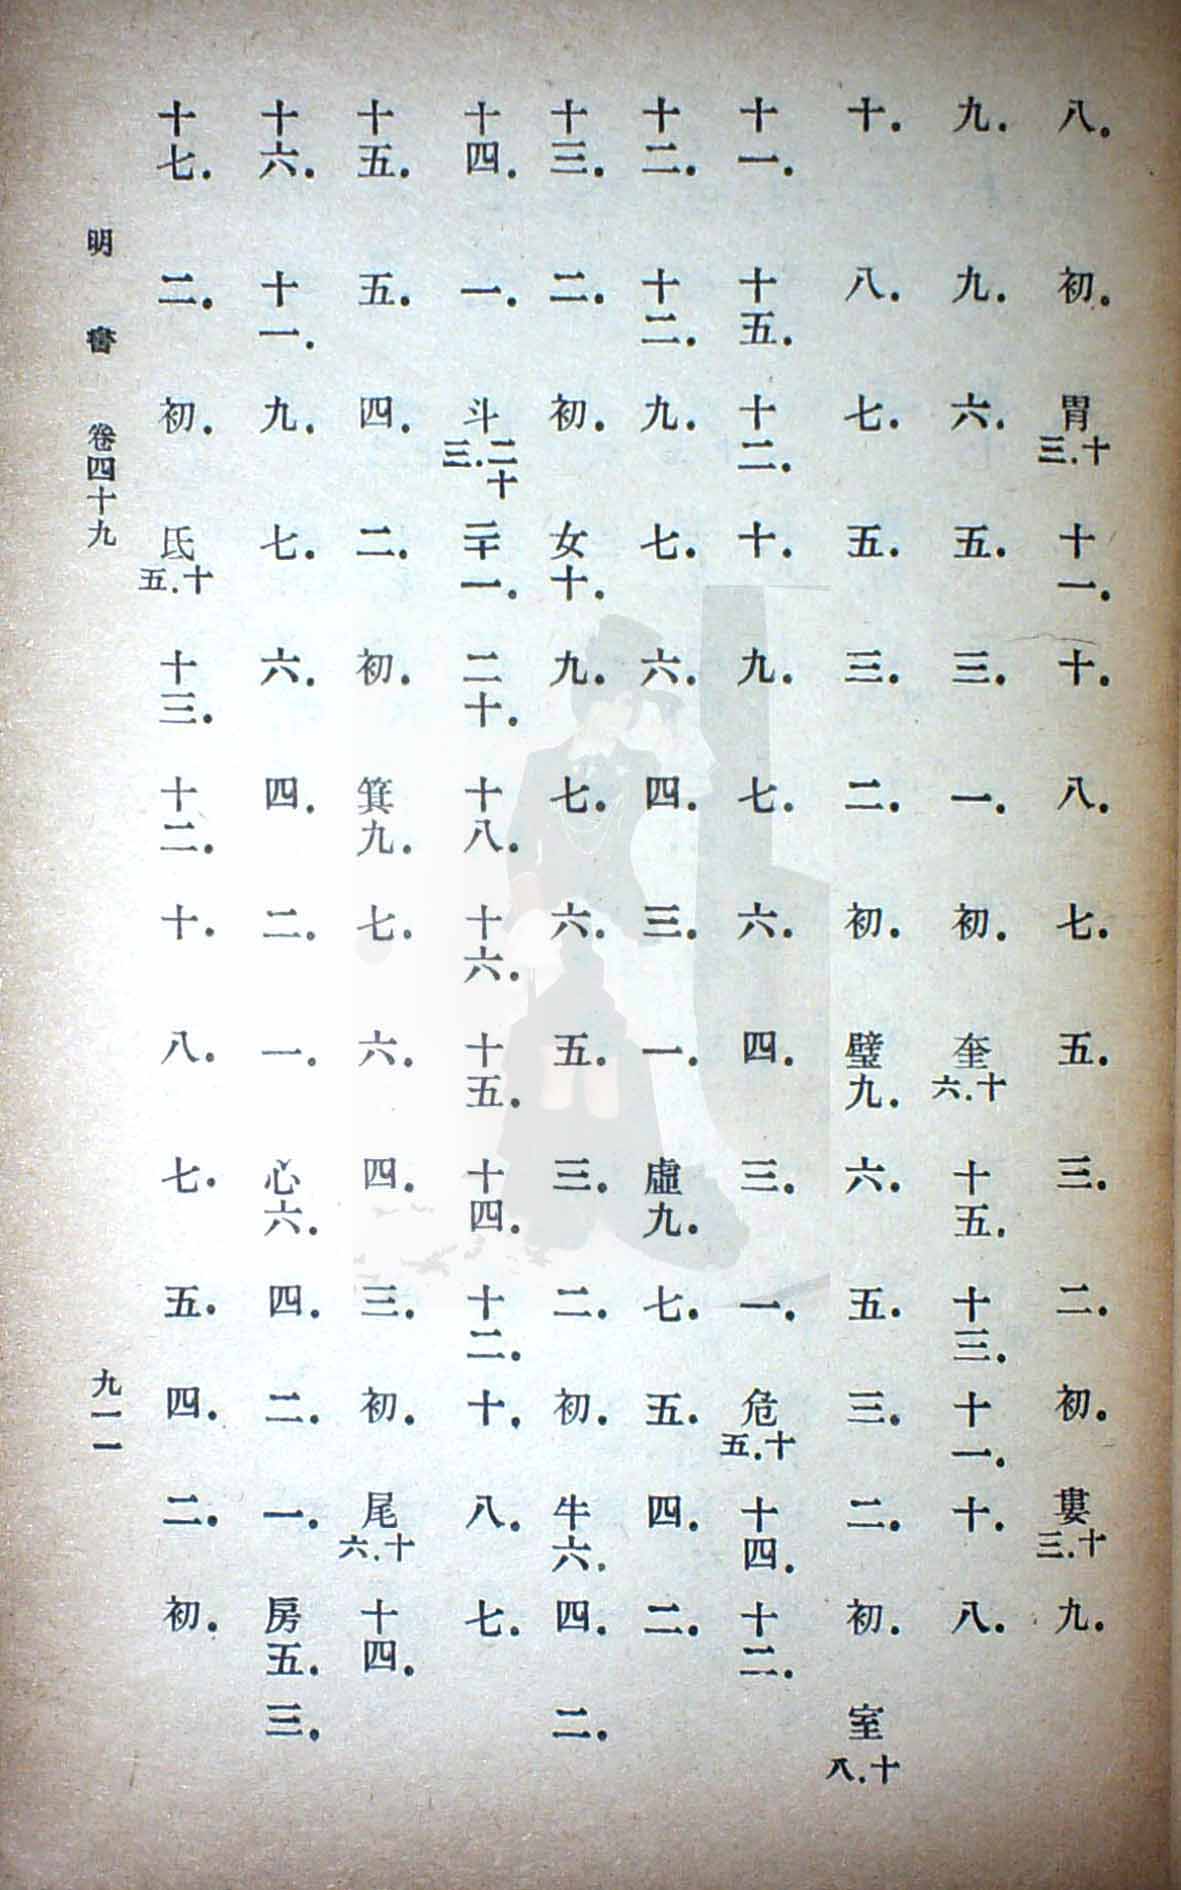 八.初.胃十.三十一.十.八.七.五.三.二.初.婁十.三九.
九.九.六.五.三.一.初.奎十.六十五.十三.十一.十.八.
十.八.七.五.三.二.初.璧九.六.五.三.二.初.室十.八
十一.十五.十二.十.九.七.六.四.三.一.危十.五十四.十二.
十二.十二.九.七.六.四.三.一.虛九.七.五.四.二.
十三.二.初.女十.九.七.六.五.三.二.初.牛六.四.二.
十四.一.斗二十.三二十一.二十.十八.十六.十五.十四.十二.十.八.七.
十五.五.四.二.初.箕九.七.六.四.三.初.尾十.六十四.
十六.十一.九.七.六.四.二.一.心六.四.二.一.房五.三.
十七.二.初.氐十.五十三.十二.十.八.七.五.四.二.初.
明書 卷四十九 九一一